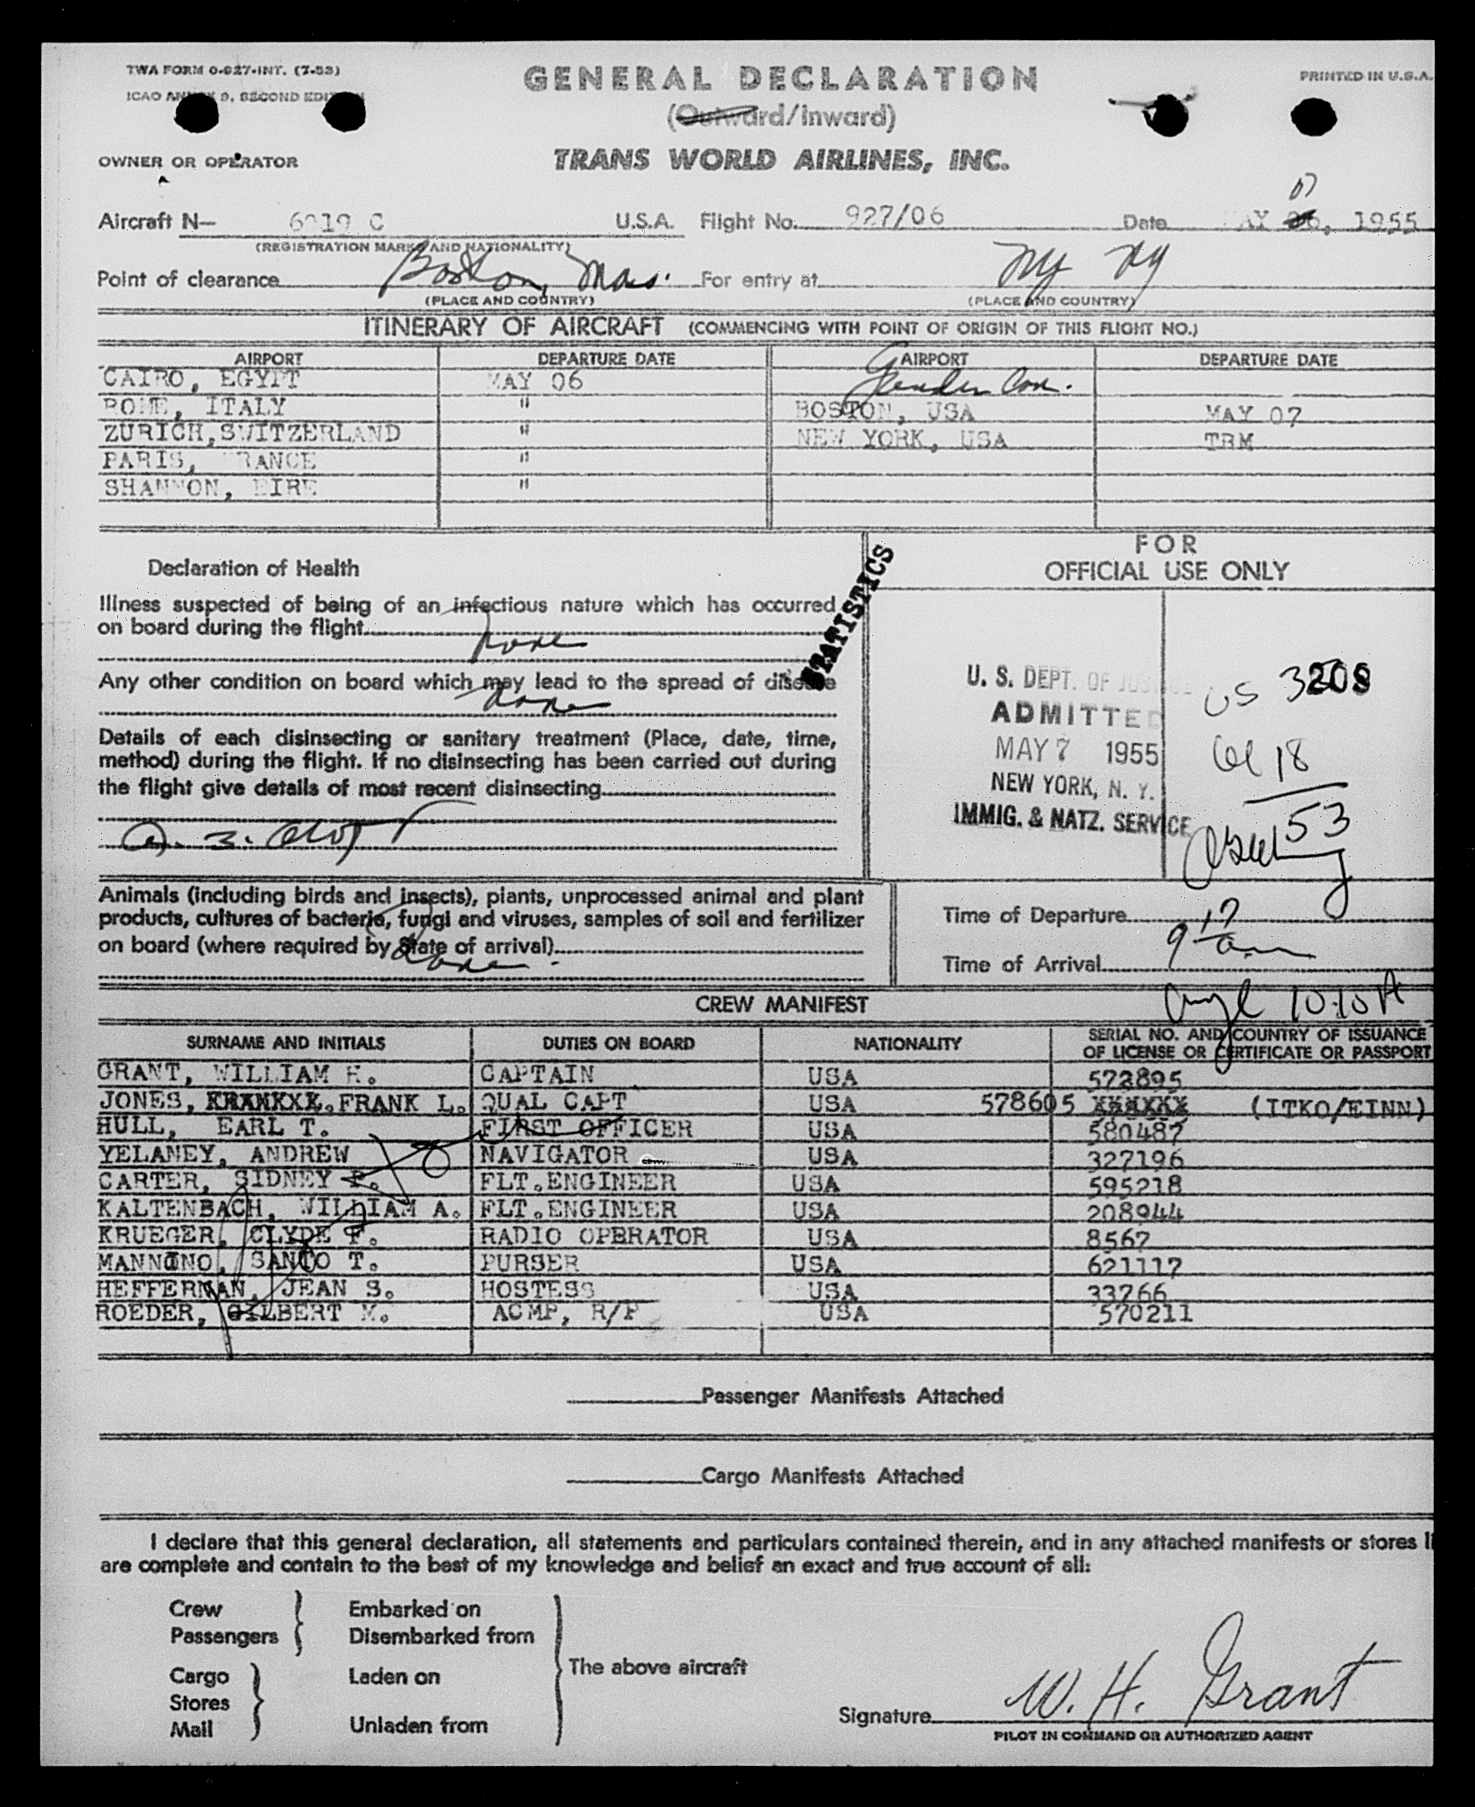 TWA FORM 0-827-INT. (7-53)
ICAO ANNEX 9, SECOND EDITION
PRINTED IN U.S.A.
GENERAL DECLARATION
(Outward/Inward)
TRANS WORLD AIRLINES, INC.
OWNER OR OPERATOR
Aircraft N— 6019 C U.S.A. Flight No. 927/06 Date MAY 06, 1955
07
(REGISTRATION MARKS AND NATIONALITY)
Point of clearance Boston, Mass. For entry at NY NY
(PLACE AND COUNTRY) (PLACE AND COUNTRY)
ITINERARY OF AIRCRAFT (COMMENCING WITH POINT OF ORIGIN OF THIS FLIGHT NO.)
AIRPORT DEPARTURE DATE AIRPORT DEPARTURE DATE
CAIRO, EGYPT MAY 06 Gander Can.
ROME, ITALY " BOSTON, USA MAY 07
ZURICH, SWITZERLAND " NEW YORK, USA TRM
PARIS, FRANCE "
SHANNON, EIRE "
FOR
OFFICIAL USE ONLY
STATISTICS
Declaration of Health
Illness suspected of being of an infectious nature which has occurred
on board during the flight
None
Any other condition on board which may lead to the spread of disease
None
Details of each disinsecting or sanitary treatment (Place, date, time,
method) during the flight. If no disinsecting has been carried out during
the flight give details of most recent disinsecting
U. S. DEPT. OF JUSTICE
ADMITTED
MAY 7 1955
NEW YORK, N. Y.
IMMIG. & NATZ. SERVICE
US 35
3208
al 18
53
Animals (including birds and insects), plants, unprocessed animal and plant
products, cultures of bacteria, fungi and viruses, samples of soil and fertilizer
on board (where required by State of arrival)
None
Time of Departure
9 17 am
Time of Arrival
10:10 A
CREW MANIFEST
SURNAME AND INITIALS DUTIES ON BOARD NATIONALITY SERIAL NO. AND COUNTRY OF ISSUANCE
OF LICENSE OR CERTIFICATE OR PASSPORT
GRANT, WILLIAM H. CAPTAIN USA 572895
JONES, FRANK L. QUAL CAPT USA 578605 (ITKO/EINN)
HULL, EARL T. FIRST OFFICER USA 580487
YELANEY, ANDREW NAVIGATOR USA 327196
CARTER, SIDNEY P. FLT.ENGINEER USA 595218
KALTENBACH, WILLIAM A. FLT.ENGINEER USA 208944
KRUEGER, CLYDE F. RADIO OPERATOR USA 8567
MANNINO, SANTO T. PURSER USA 621117
HEFFERNAN, JEAN S. HOSTESS USA 33766
ROEDER, GILBERT M. ACMP, R/P USA 570211
Passenger Manifests Attached
Cargo Manifests Attached
I declare that this general declaration, all statements and particulars contained therein, and in any attached manifests or stores li
are complete and contain to the best of my knowledge and belief an exact and true account of all:
Crew Embarked on
Passengers Disembarked from
The above aircraft
Cargo Laden on
Stores
Mail Unladen from
Signature W. H. Grant
PILOT IN COMMAND OR AUTHORIZED AGENT